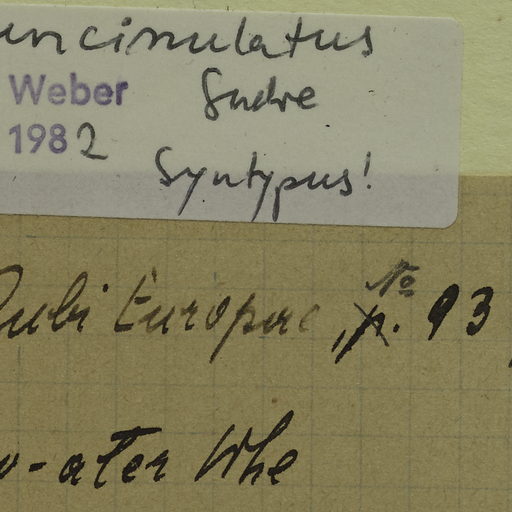 uncinulatus
Weber Sudre
1982
Syntypus!
Rubi Europae, No
p. 93
o-ater Whe